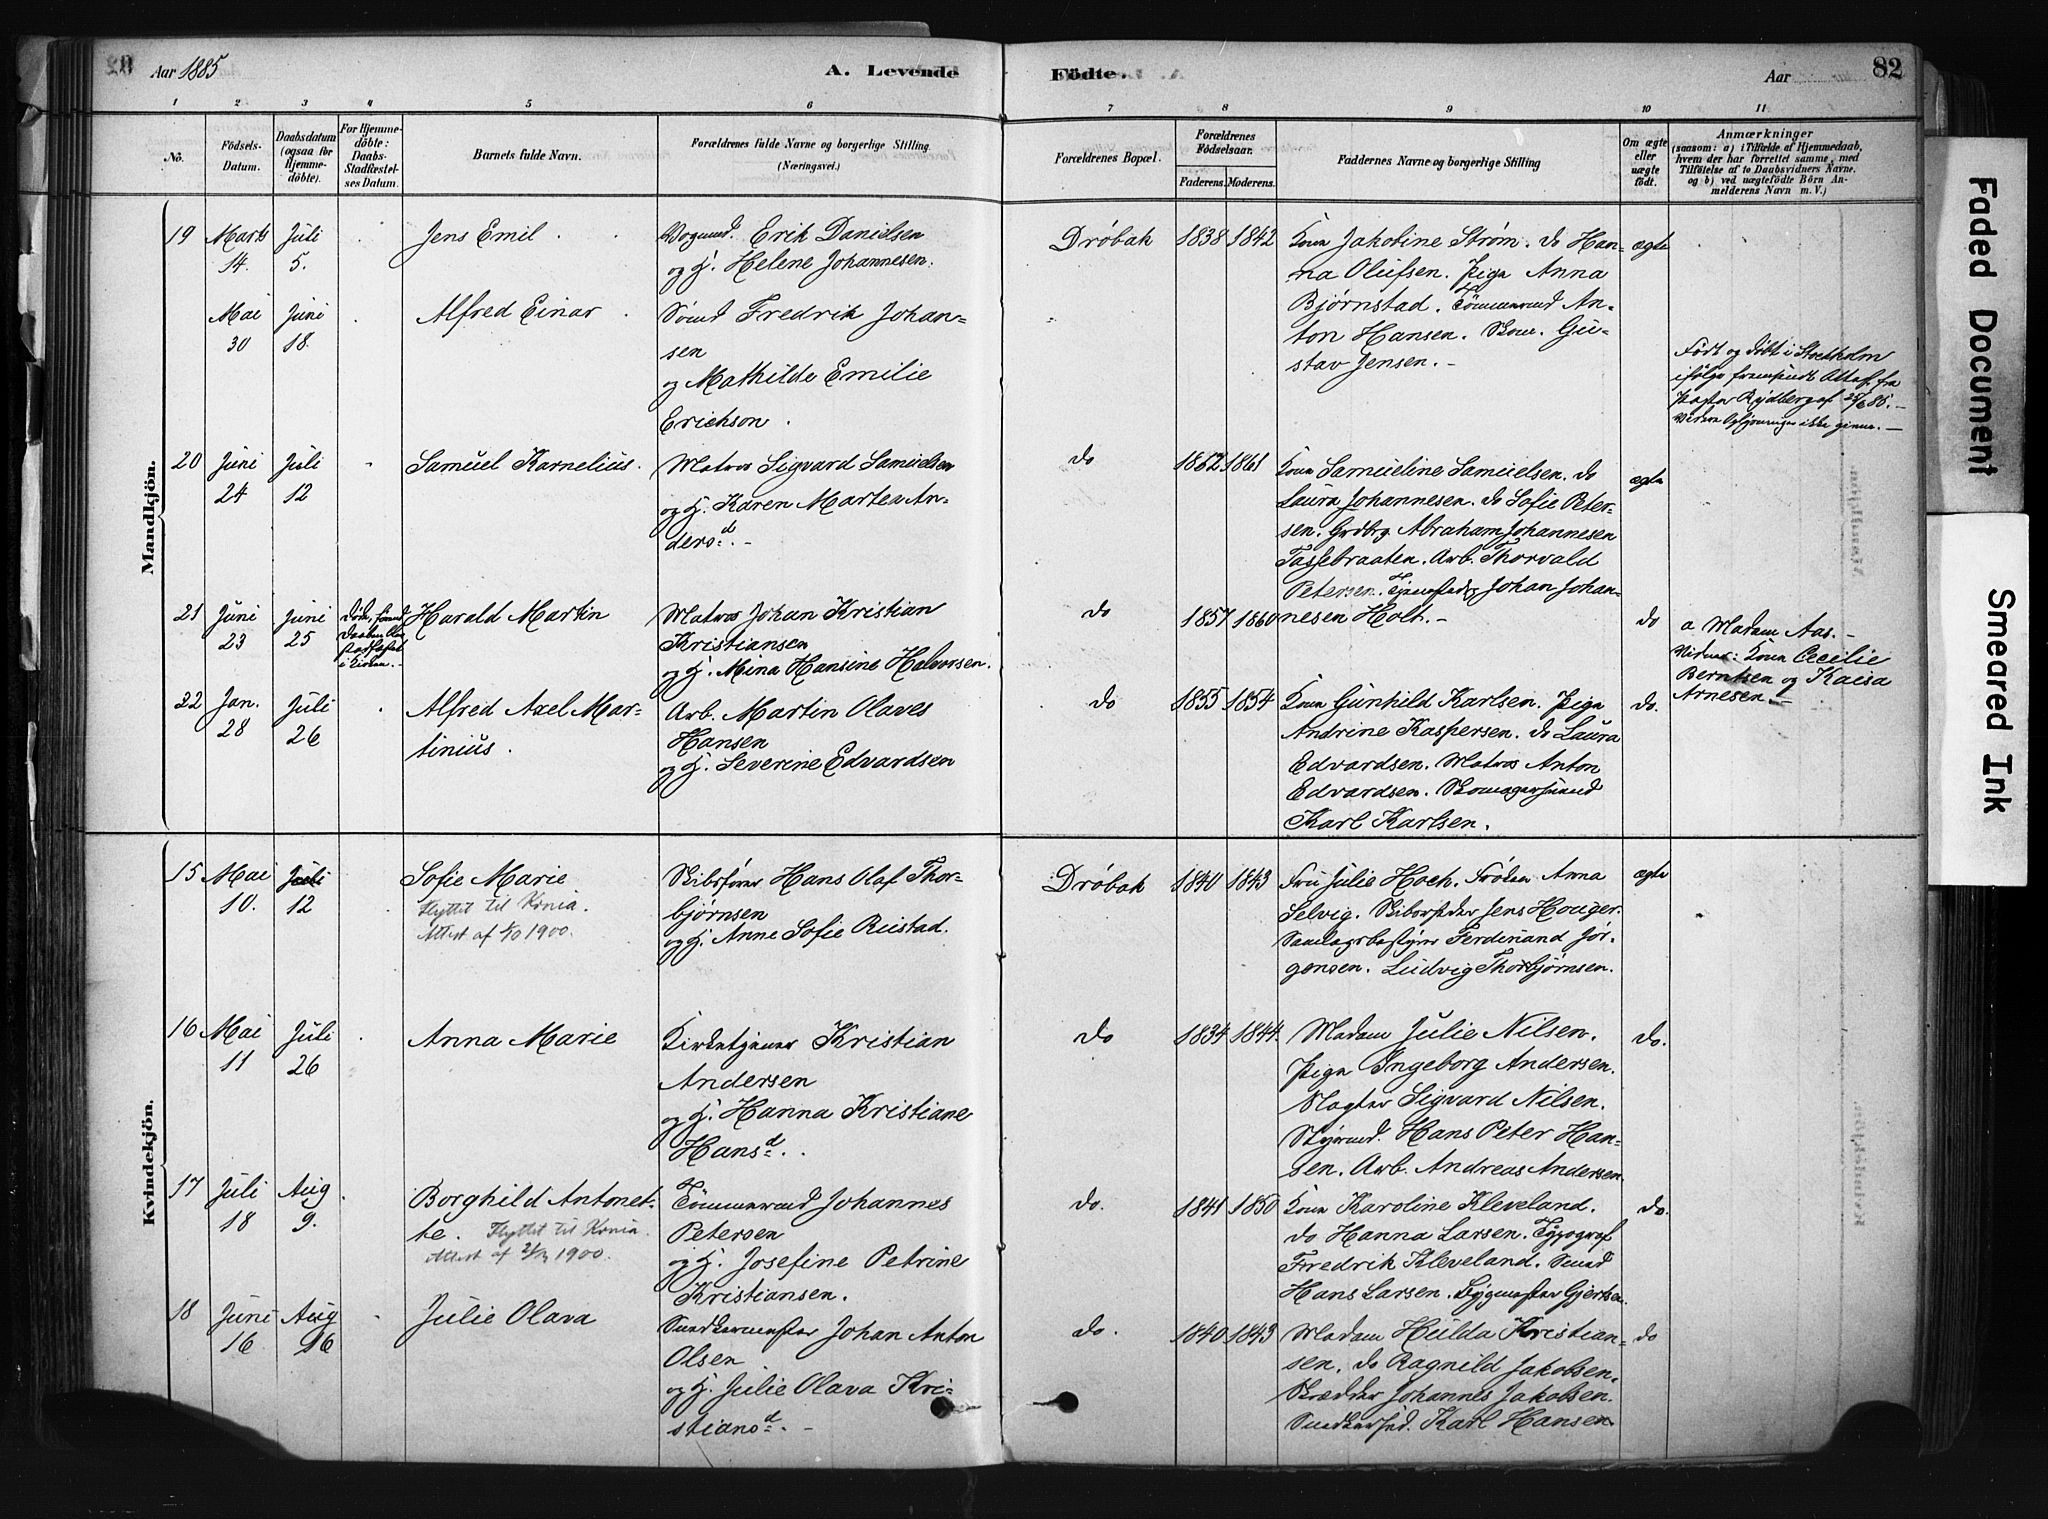 Aar 1885
A. Levende
Födte.
Aar
82
1 2 3 4 5 6 7 8 9 10 11
No.
Födsels-
Datum.
Daabsdatum
(ogsaa for
Hjemme-
döbte).
For Hjemme-
döbte:
Daabs-
Stadfæstel-
ses Datum.
Barnets fulde Navn.
Forældrenes fulde Navne og borgerlige Stilling.
(Næringsvei.)
Forældrenes Bopæl.
Forældrenes
Födselsaar.
Faderens. Moderens.
Faddernes Navne og borgerlige Stilling
Om ægte
eller
uægte
födt.
Anmærkninger
(saasom: a) i Tilfælde af Hjemmedaab,
hvem der har forrettet samme, med
Tilföielse af to Daabsvidners Navne.
og b) ved uægtefödte Börn An-
melderens Navn m. V.)
Mandkjön.
19 Marts 14. Juli 5. Jens Emil
Erik Danielsen
og H. Helene Johannesen.
Drøbak 1838 1842
Kone Jakobine Strøm. do Han-
na Olufsen. Pige Anna
Bjørnstad. Tømmermd An-
ton Hansen. Skom. Gu-
stav Jensen. -
ægte
Mai 30 Juni 18. Alfred Einar
Sømd Fredrik Johan-
sen
og Mathilde Emilie
Erichson.
Født og døbt i Stockholm
ifølge fremsendt Attest fra
Pastor Rydberg af 25/6 85. -
20 Juni 24 Juli 12 Samuel Karnelius.
Matros Sigvard Samuelsen
og H. Karen Martea An-
dersd. -
do 1862 1861
Kone Samueline Samuelsen. do
Laura Johannesen. do Sofie Peter-
sen. Grdbr. Abraham Johannesen
Tassebraaten. Arb. Thorvald
Petersen. Johan Johan-
nesen Holt. -
ægte
21 Juni 23 Juni 25
Harald Martin
Matros Johan Kristian
Kristiansen
og H. Mina Hansine Halvorsen.
do 1857 1860
do
a Madam Aas. -
Vidner: Kone Cecilie
Berntsen og Kaisa
Arnesen. -
22 Jan. 28 Juli 26
Alfred Axel Mar-
tinius.
Arb. Martin Olaves
Hansen
og H. Severine Edvardsen
do 1855 1854
Kone Gunhild Karlsen. Pige
Andrine Kaspersen. do Laura
Edvardsen. Matros Anton
Edvardsen. Skomagersvend
Karl Karlsen.
do.
Kvindekjön.
15 Mai 10. Juli 12
Sofie Marie
Flyttet til Krnia.
Attest af 1900.
Skibsfører Hans Olaf Thor-
bjørnsen
og H. Anne Sofie Rustad.
Drøbak 1840 1843
Fru Julie Hoch. Frøken Anna
Selvig. Skibsreder Jens Houger.
Samlagsbestyrer Ferdinand Jør-
gensen. Ludvig Thorbjørnsen.
ægte
16 Mai 11 Juli 26
Anna Marie
Kirketjener Kristian
Andersen
og H. Hanna Kristiane
Hansd.
do 1834 1844.
Madam Julie Nilsen.
Pige Ingeborg Andersen.
Slagter Sigvard Nilsen.
Hans Peter Han-
sen. Arb. Andreas Andersen.
do.
17 Juli 18 Aug 9.
Borghild Antonet-
te. Flyttet til Krnia.
Attest af 1900.
Tømmermd Johannes
Petersen
og H. Josefine Petrine
Kristiansen.
do. 1841 1850
Kone Karoline Kleveland.
do Hanna Larsen. Typograf
Fredrik Kleveland. Smed
Hans Larsen. Bygmester Gjertsen.
do.
18 Juni 16 Aug 16
Julie Olava
Snedkermester Johan Anton
Olsen
og H. Julie Olava Kri-
stiansd. -
do. 1840 1843
Madam Hulda Kristian-
sen. do Ragnild Jakobsen.
Skrædder Johannes Jakobsen.
Karl Hansen.
do
Faded Document
Smeared Ink